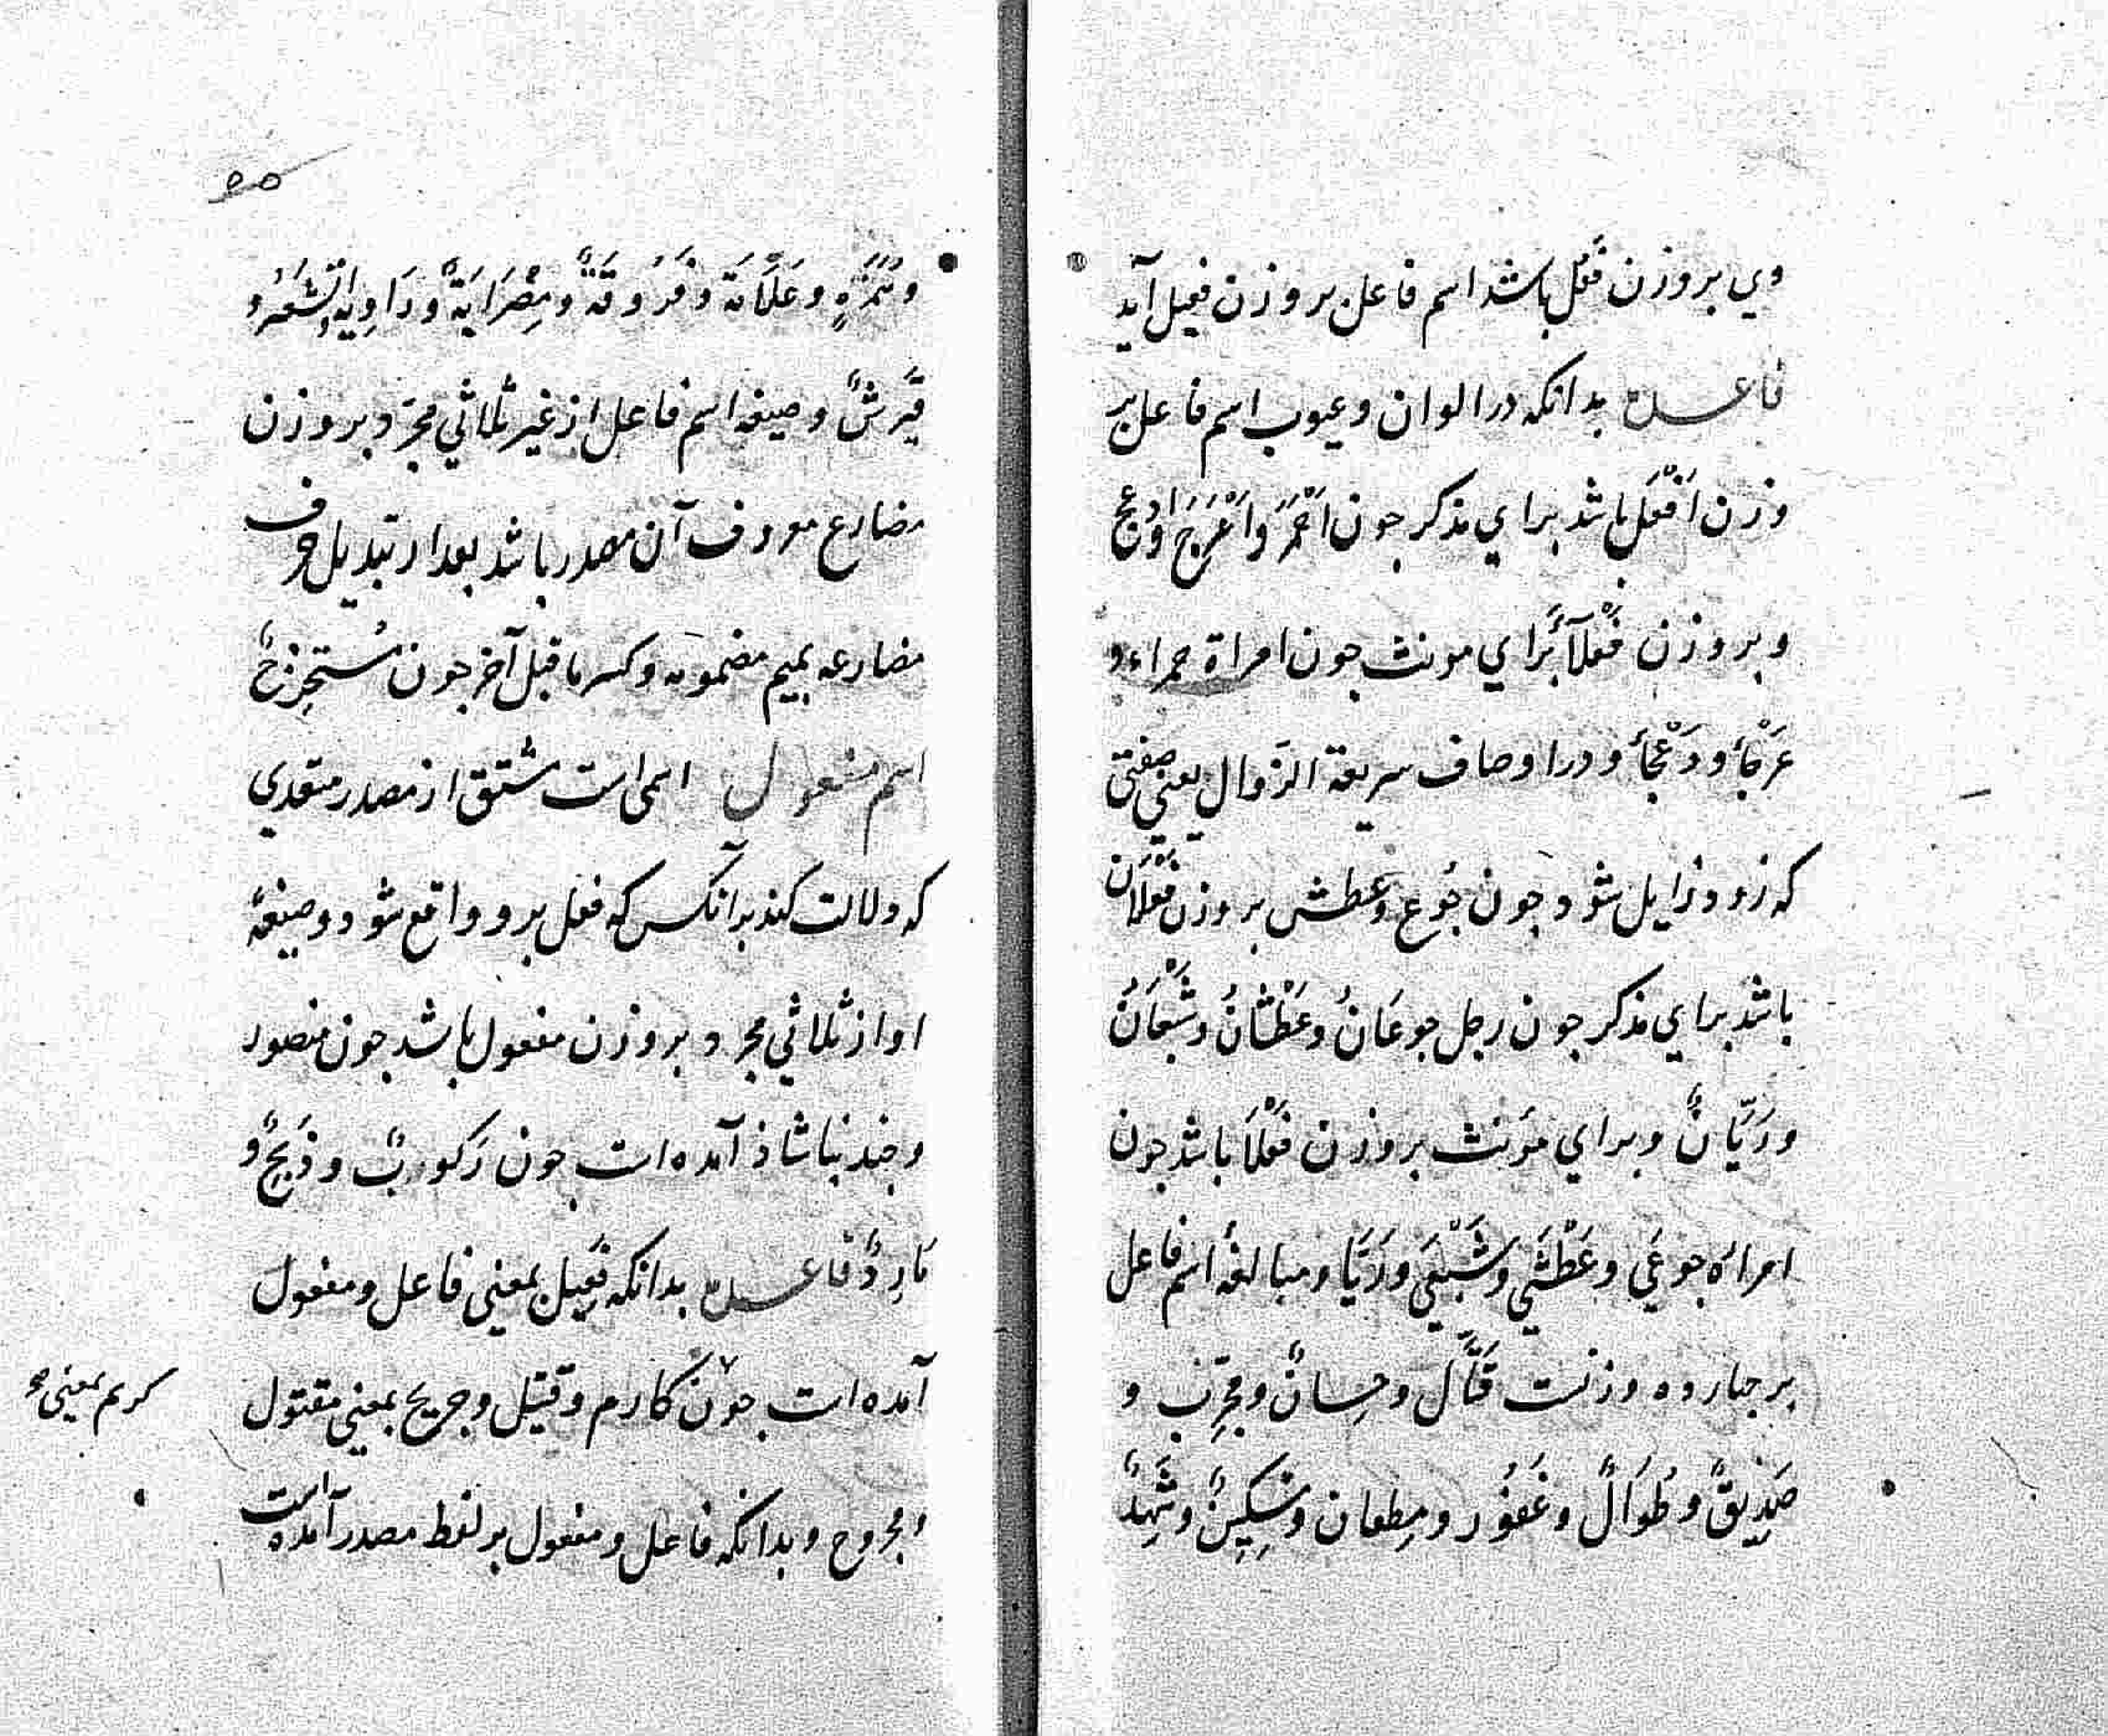 وي بر وزن فعل باشد اسم فاعل بر وزن فعيل آيد
فاعـــده بدانكه در الوان و عيوب اسم فاعل بر
وزن اَفْعَل باشد براي مذكر جون اَحْمَرَ و اَعْرَجَ و ادعج
و بر وزن فَعْلَآءُ براي مونث جون امراة حمراء و
عَرْجَأ و دَعْجَأ و در اوصاف سريعة الزوال يعني صفتي
كه زود زايل شود جون جُوع و عطش بر وزن فَعْلَان
باشد براي مذكر جون رجل جوعَانُ و عَطْشَانُ و شَبْعَانُ
و رَيَّانٌ و براي مؤنث بر وزن فَعْلَا باشد جون
امراه جوعَي و عَطْشَي و شَبْعَي و رَيَّا و مبالغهٔ اسم فاعل
بر جهارده وزنست قَتَّال و حِسانٌ و مِجْزب و
صِدِيقٌ و طُوَالٌ و غَفُور و مِطعان و سِكِينٌ و شَهِدٌ
و عَلَّامَة و فَرُوقَةٌ و مِضْرَابَةٌ و رَاوِية الشعر و
و صيغه اسم فاعل از غير ثلاثي مجرّد بر وزن
مضارع معروف آن مصدر باشد بعد از تبديل حرف
مضارعه بميم مضمومه و كسر ما قبل آخر جون مُستخرِجٌ
اسم مفعول اسمي است مشتق از مصدر متعدي
كه دلالت كند بر آنكس كه فعل برو واقع شود و صيغهٔ
او از ثلاثي مجرد بر وزن مفعول باشد جون منصور
و جند بنا شاذ آمده است جون رَكوبٌ و ذَبِيحٌ و
مَارِدٌ فاعـــده بدانكه فَعِيل بمعني فاعل و مفعول
آمده است جون كارم و قتيل و جريح بمعني مقتول
كريم بمعني
و مجروح و بدانكه فاعل و مفعول بر لفظ مصدر آمده است